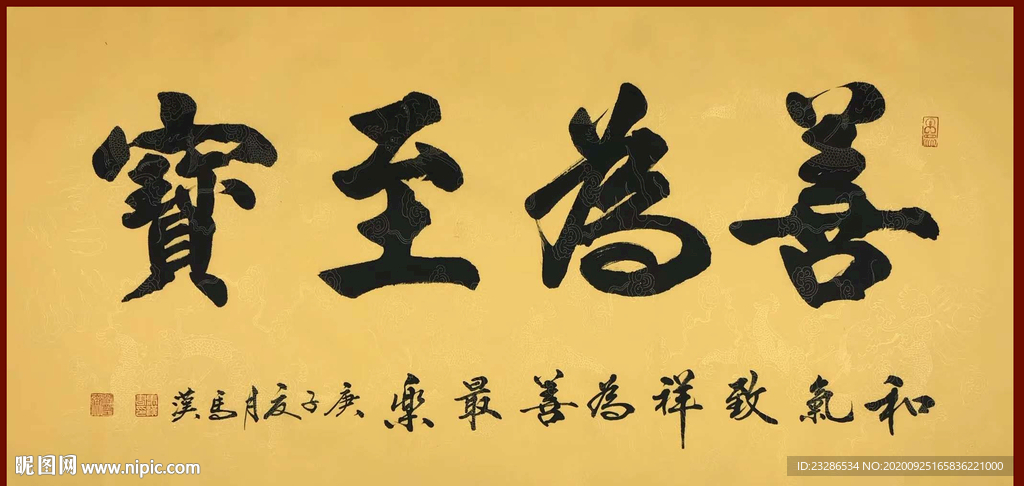 善為至寶
和氣致祥為善最樂 庚子夏月馬漢
昵图网 www.nipic.com
ID:23286534 NO:20200925165836221000